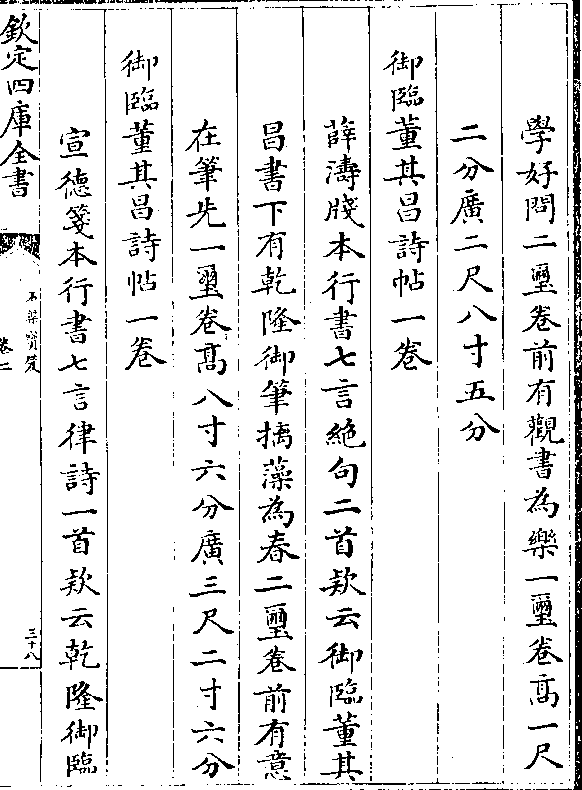 學好問二璽卷前有觀書為樂一璽卷高一尺
二分廣二尺八寸五分
御臨董其昌詩帖一卷
薛濤牋本行書七言絶句二首款云御臨董其
昌書下有乾隆御筆摛藻為春二璽卷前有意
在筆先一璽卷高八寸六分廣三尺二寸六分
御臨董其昌詩帖一卷
宣德箋本行書七言律詩一首款云乾隆御臨
欽定四庫全書
石渠寶笈
卷二
三十八